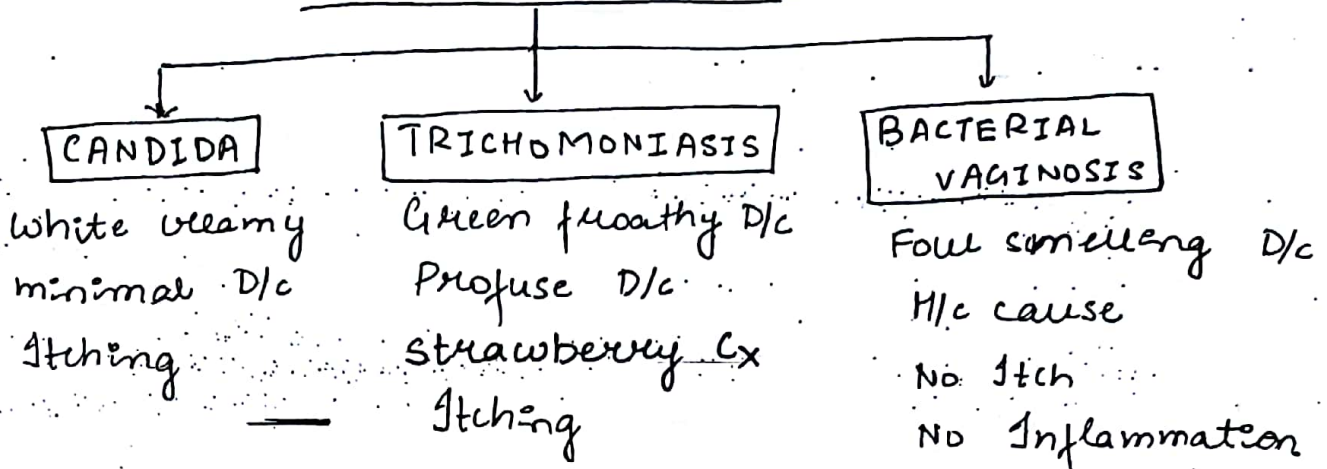 CANDIDA
White creamy
minimal D/c
Itching
TRICHOMONIASIS
Green froathy D/c
Profuse D/c
Strawberry Cx
Itching
BACTERIAL
VAGINOSIS
Foul smelleng D/c
M/c cause
No Itch
No Inflammation